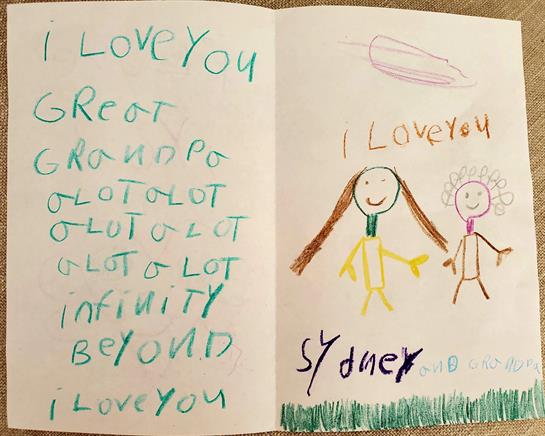 i LoveYou
GReat
GRanDPa
aLOTaLOT
aLOT aLOT
aLOT a LOT
infiniTY
BeYOND
i LoveYOU
i LoveYOU
SYdney anD GRanDPa